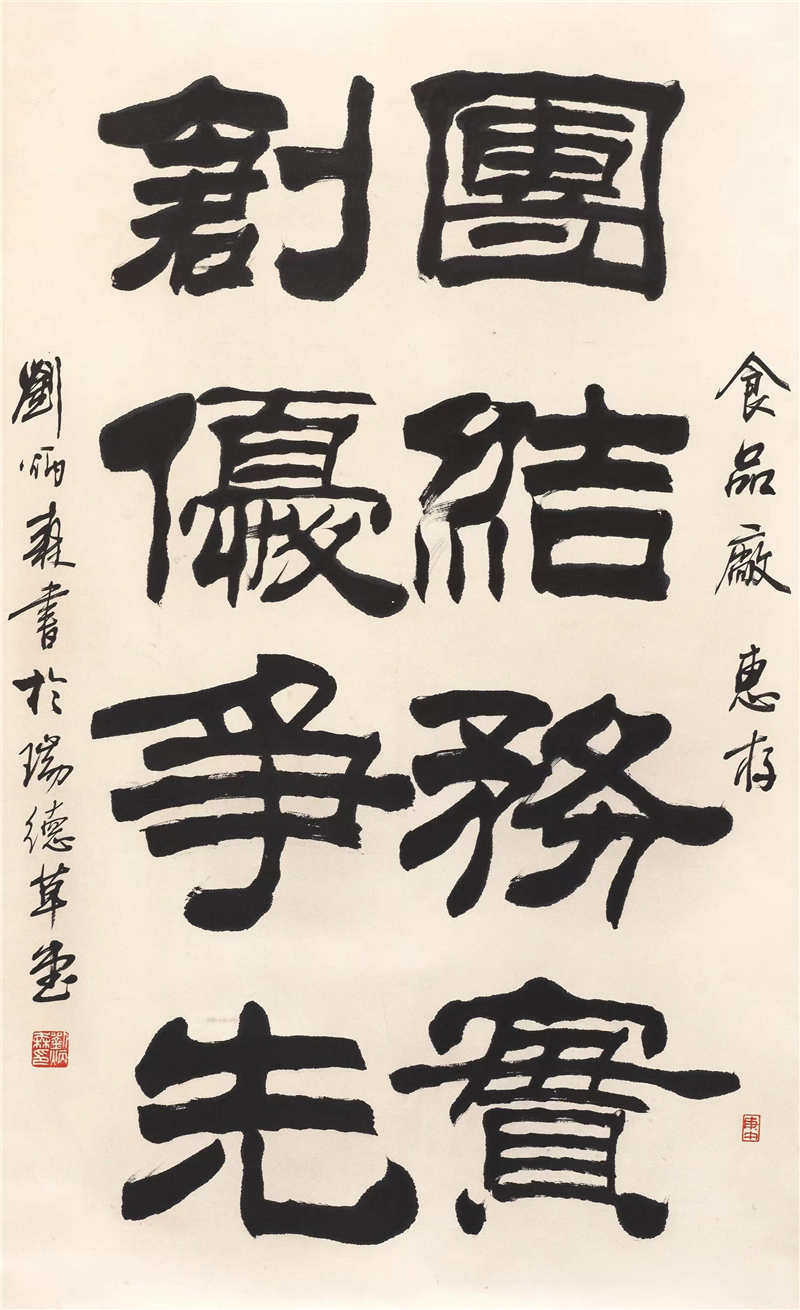 食品廠 惠存
團結務實
創優爭先
劉炳森書於瑞德草堂
劉炳森印
庚申